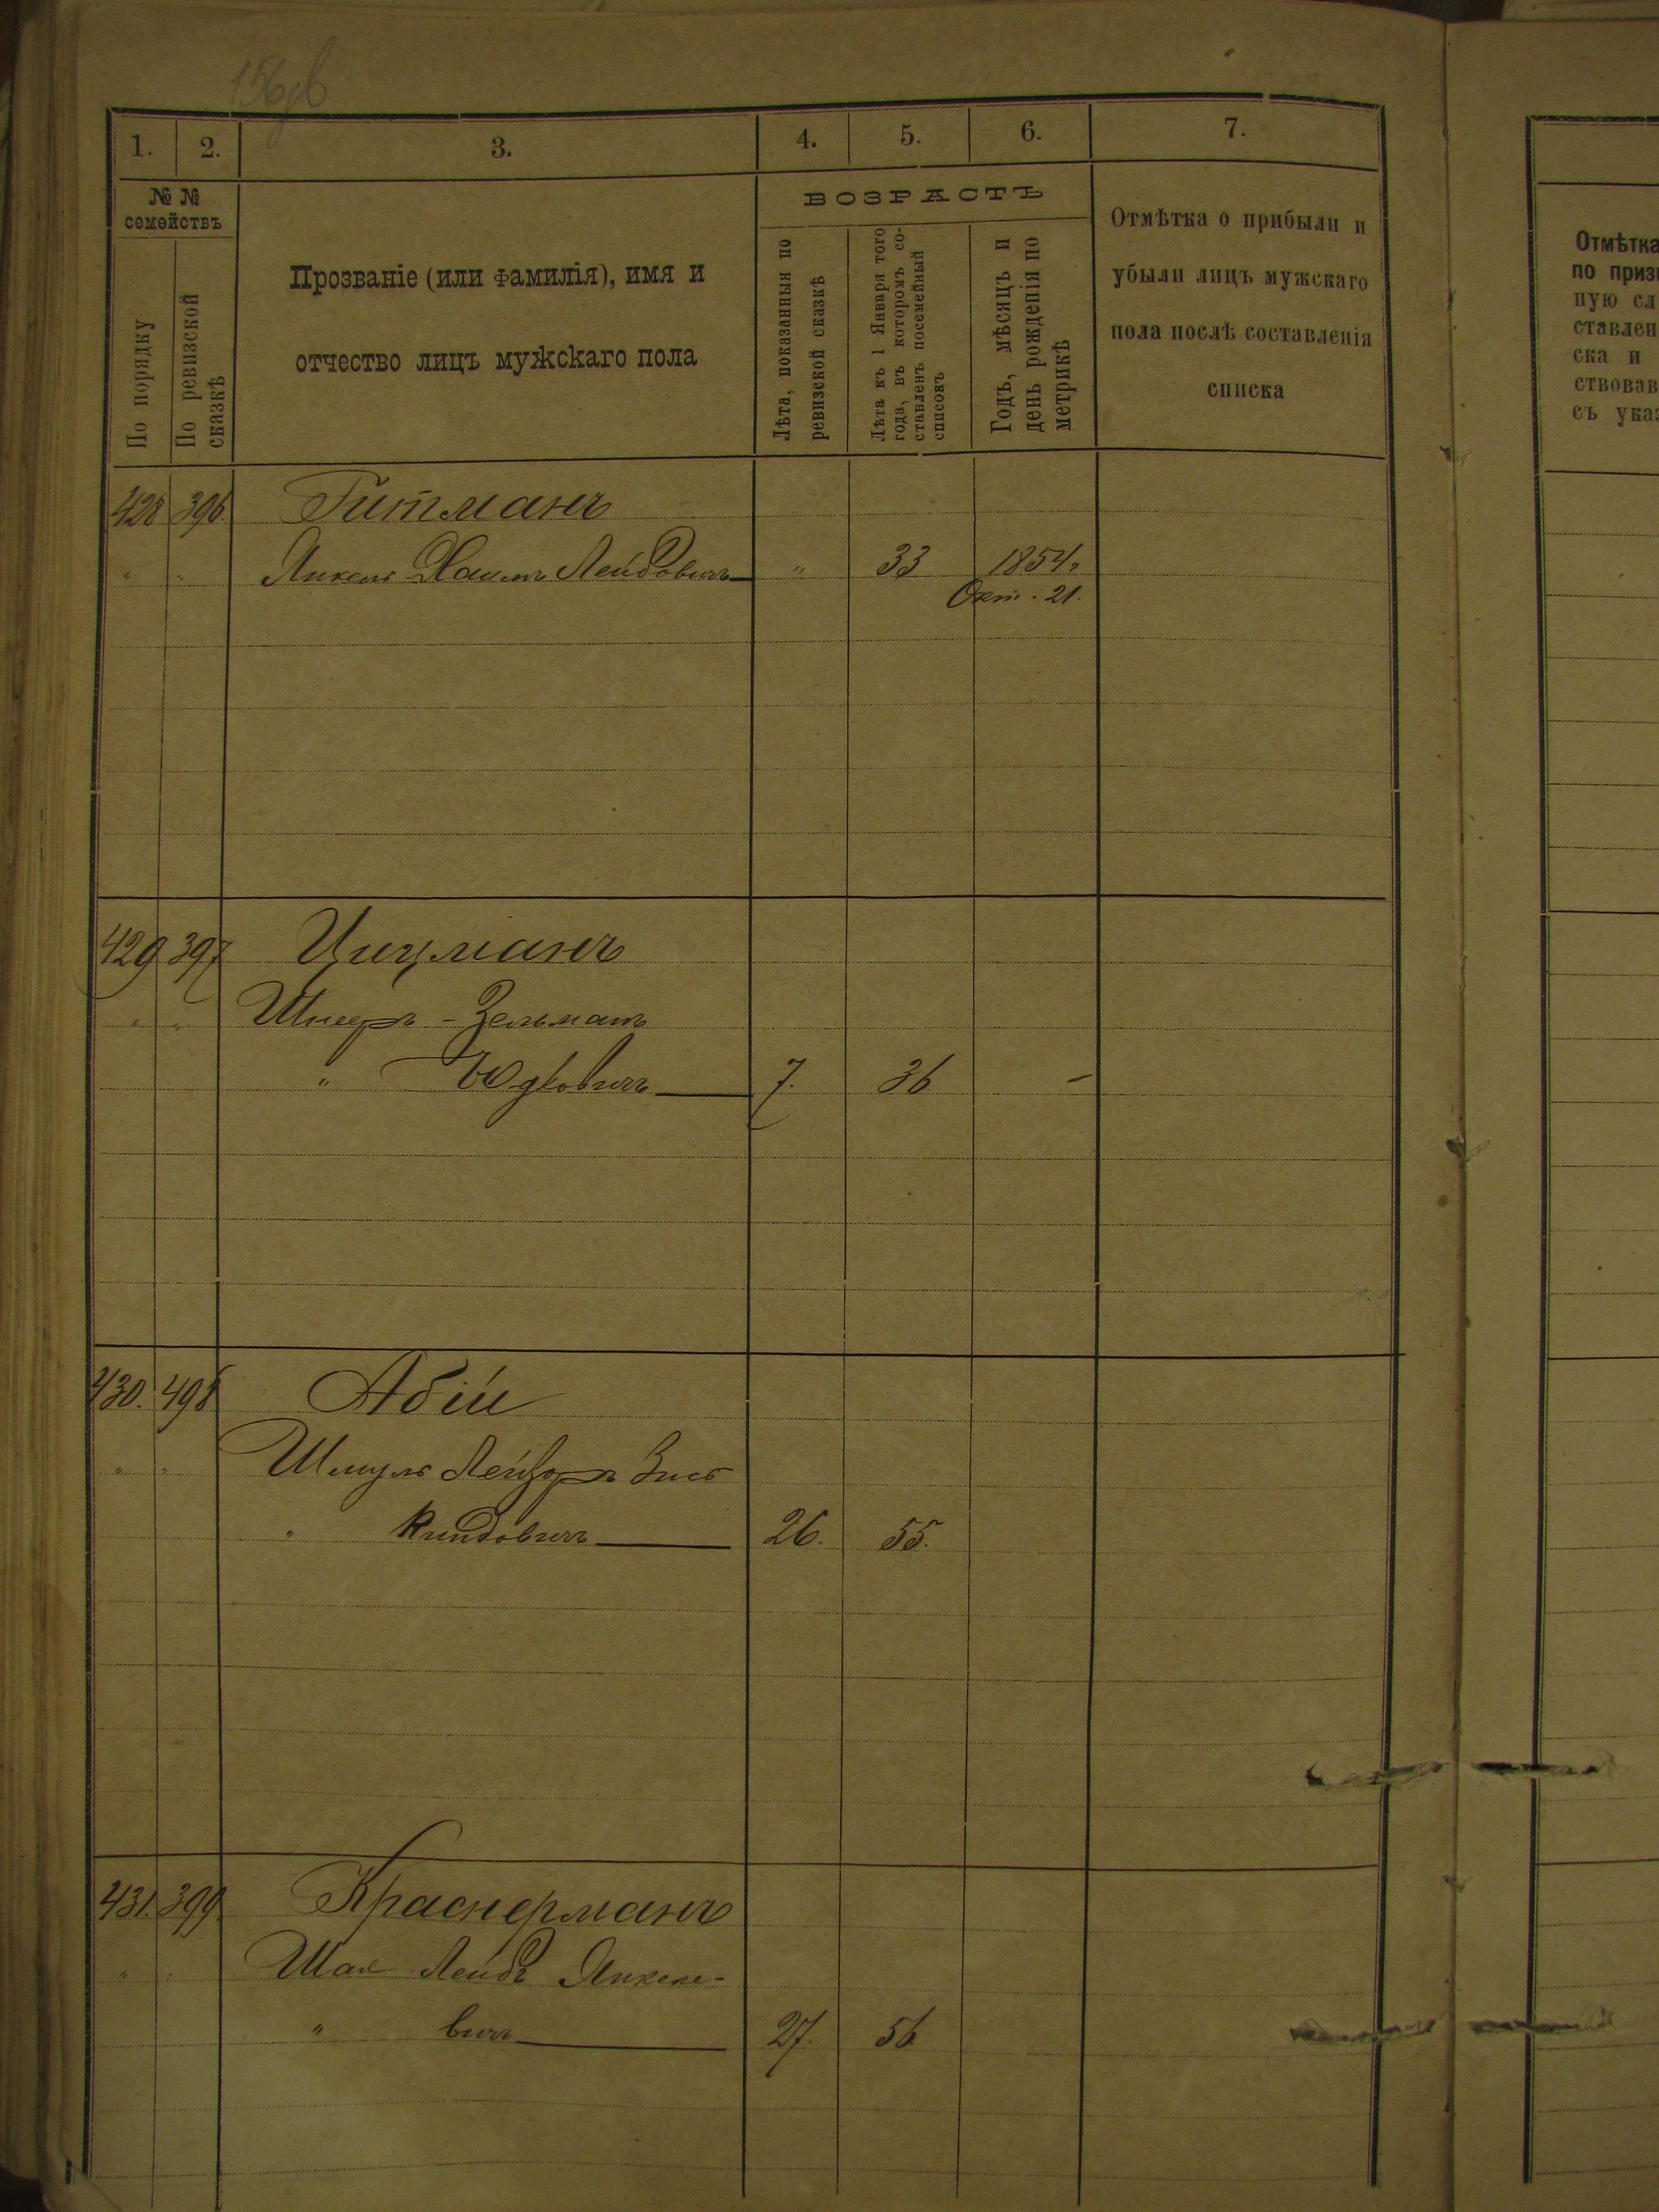 156об
1. 2. 3. 4. 5. 6. 7.
№ №
семействъ
По порядку
По ревизской
сказкѣ
Прозваніе (или фамилія), имя и
отчество лицъ мужскаго пола
ВОЗРАСТЪ
Лѣта, показанныя по
ревизской сказкѣ
Лѣта къ 1 Января того
года, въ которомъ со-
ставленъ посемейный
списокъ
Годъ, мѣсяцъ и
день рожденія по
метрикѣ
Отмѣтка о прибыли и
убыли лицъ мужскаго
пола послѣ составленія
списка
Отмѣтка
по приз
ную сл
ставлен
ска и
ствовав
съ ука
428 396 Гитманъ
" " Янкель Хаимъ Лейбовичъ " 33 1854.
Окт. 21.
429 397 Цицманъ
" " Шнееръ - Зельманъ
" Юдковичъ 7. 36 -
430. 498 Абій
" " Шмуль Лейзоръ Зись
" Киндовичъ 26. 55.
431. 399 Краснерманъ
" " Шая Лейбъ Янкеле-
" вичъ 27. 56